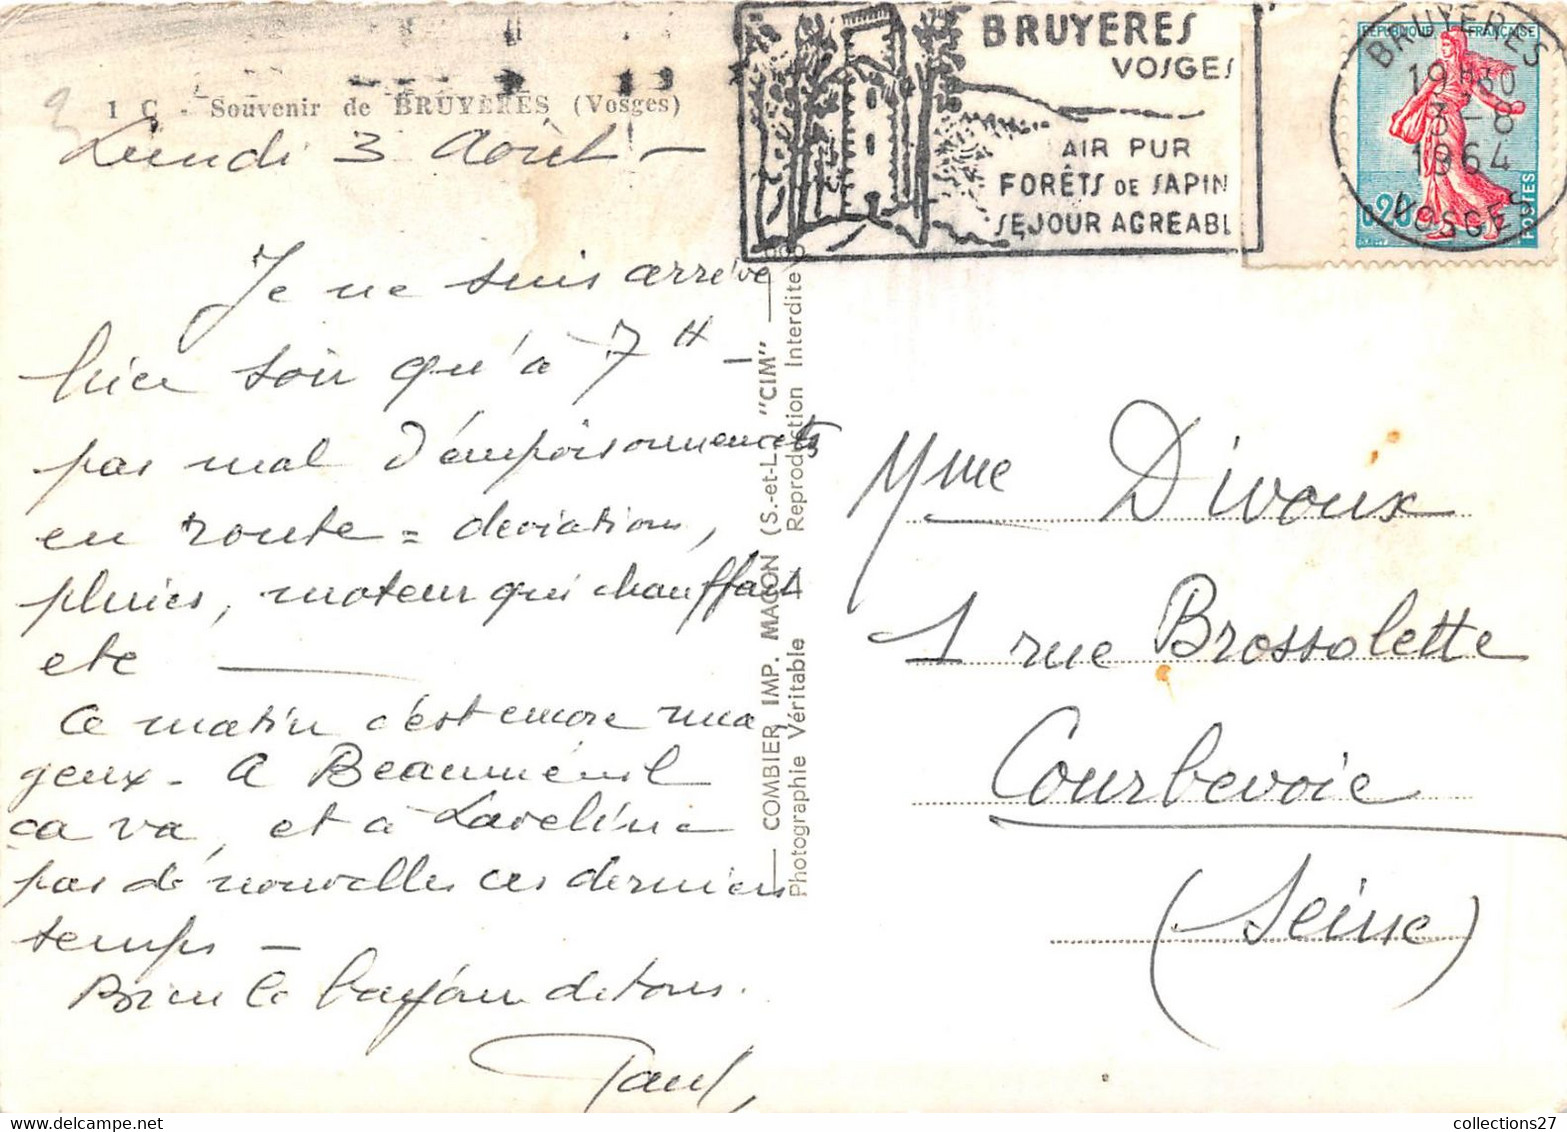 1 C - Souvenir de BRUYÈRES (Vosges)
Lundi 3 Août -
Je ne suis arrivé
hier soir qu'à 7 H -
pas mal d'empoisonnements
en route = deviations,
pluies, moteur qui chauffait
etc
Ce matin c'est encore nua
geux - A Beauménil
ça va, et à Laveline
pas de nouvelles ces derniers
temps -
Bien le bonjour de tous.
Paul
COMBIER IMP. MACON (S.-et-L.) "CIM"
Photographie Véritable - Reproduction Interdite
BRUYERES
VOSGES
AIR PUR
FORÊTS DE SAPIN
SEJOUR AGREABL
REPUBLIQUE FRANÇAISE
0,20
POSTES
BRUYERES
19H30
3-8
1964
VOSGES
Mme Divoux
1 rue Brossolette
Courbevoie
(Seine)
collections27